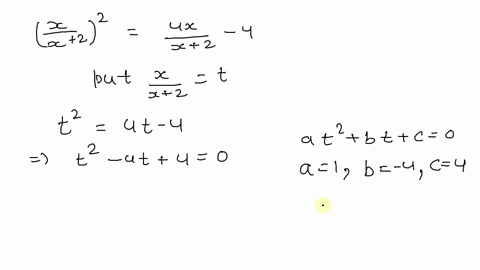 (x/x+2)² = 4x/x+2 - 4
put x/x+2 = t
t² = 4t-4
=> t² -4t+4=0
at²+bt+c=0
a=1, b=-4, c=4